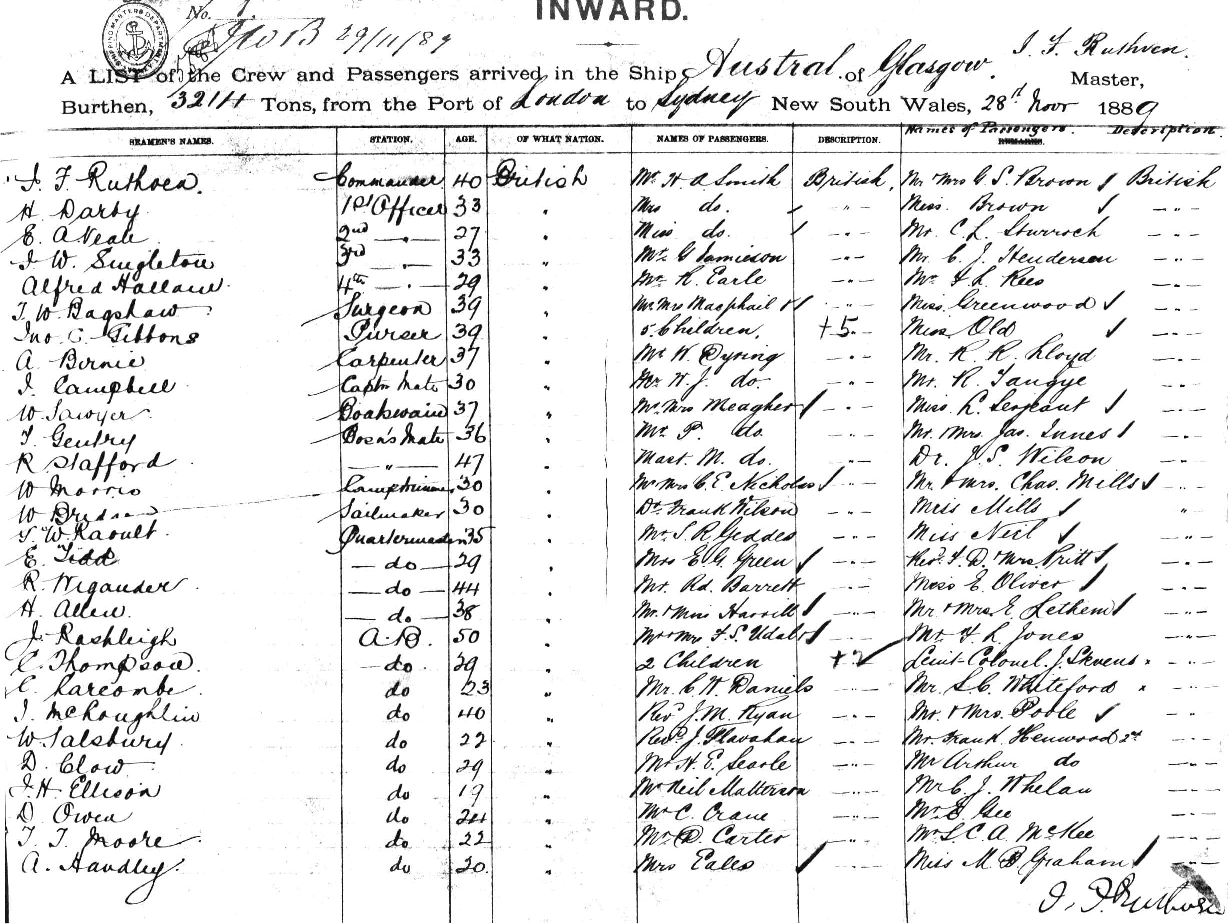 INWARD.
No. 1.
29/11/89
SHIPPING MASTERS DEPARTMENT
J. F. Ruthven
A LIST of the Crew and Passengers arrived in the Ship Austral of Glasgow. Master,
Burthen, 3214 Tons, from the Port of London to Sydney New South Wales, 28th Novr 1889
SEAMEN'S NAMES. STATION. AGE. OF WHAT NATION. NAMES OF PASSENGERS. DESCRIPTION. Names of Passengers. Description.
J. F. Ruthven. Commander 40 British Mr H A Smith British. Mr & Mrs G. S. Brown British
H. Darby 1st Officer 33 " Mrs do. - " - Miss. Brown - " -
E. A Veale 2nd — " — 27 " Miss do. - " - Mr. C. L. - " -
J. W. Singleton 3rd — " — 33 " Mr. G Jamieson - " - Mr. C. J. Henderson - " -
Alfred Hallam. 4th — " — 29 " Mr. R. Earle - " - Mr Rees - " -
T. W. Bagshaw Surgeon 39 " Mr. Mrs Macphail - " - Miss. Greenwood - " -
Jno. C. Tibbons Purser 39 " 5 Children. +5 - Miss Old - " -
A Birnie Carpenter 37 " Mr W Dyring - " - Mr. R. R. Lloyd - " -
J. Campbell Captn Mate 30 " W. J. do. - " - Mr. R. Tangye - " -
W Sawyer Boatswain 37 " Mr. Mrs Meagher - " - Miss. L. Sergeant - " -
T. Gentry Bosn's Mate 36 " Mr. P. do. - " - Mr. & Mrs. Jas. Innes - " -
R Stafford — " — 47 " Mast. M. do. - " - Dr. J. S. Wilson - " -
W Morris 30 " Mr Mrs C. E. Nicholas - " - Mr. & Mrs. Chas. Mills - " -
W Sailmaker 30 " Dr. Frank Wilson - " - Miss Mills "
W. Raoult. Quartermaster 35 " Mr. S. R. Geddes - " - Miss Neil - " -
E. Tidd — do — 29 " Mrs E. G. Green - " - Revd. & Mrs. Pritt - " -
R. Wigander — do — 44 " Mr. Rd. Barrett - " - Miss E. Oliver - " -
H. Allen. — do — 38 " Mr. & Miss - " - Mr & Mrs. E. Lethem - " -
J. Rashleigh A.B. 50 " Mr & Mrs F. S. Udal - " - Mr. Jones - " -
C. Thompson. — do. 29 " 2 Children +2 Leiut-Colonel. J. Stevens - " -
C. Larcombe. do 23 " Mr. C. W. Daniels - " - Mr. S. C. Whiteford - " -
J. McLoughlin do 40 " Revd J. M. Ryan - " - Mr. & Mrs. Poole - " -
W. Salsbury. do 22 " Revd. J. Flavahan - " - Mr. Frank. Henwood - " -
D. Clow. do 29 " Mr H. E. Searle - " - Mr Arthur do - " -
J. H. Ellison do 19 " Mr Neil Matterson - " - Mr C. J. Whelan - " -
D. Owen do 24 " Mr C. Crane - " - Mr E. Gee - " -
T. T. Moore do 22 " Mr D. Carter - " - Mr. S. C. A. McKee - " -
A. Handley. do 20. " Mrs Eales - " - Miss M B Graham - " -
J. F. Ruthven